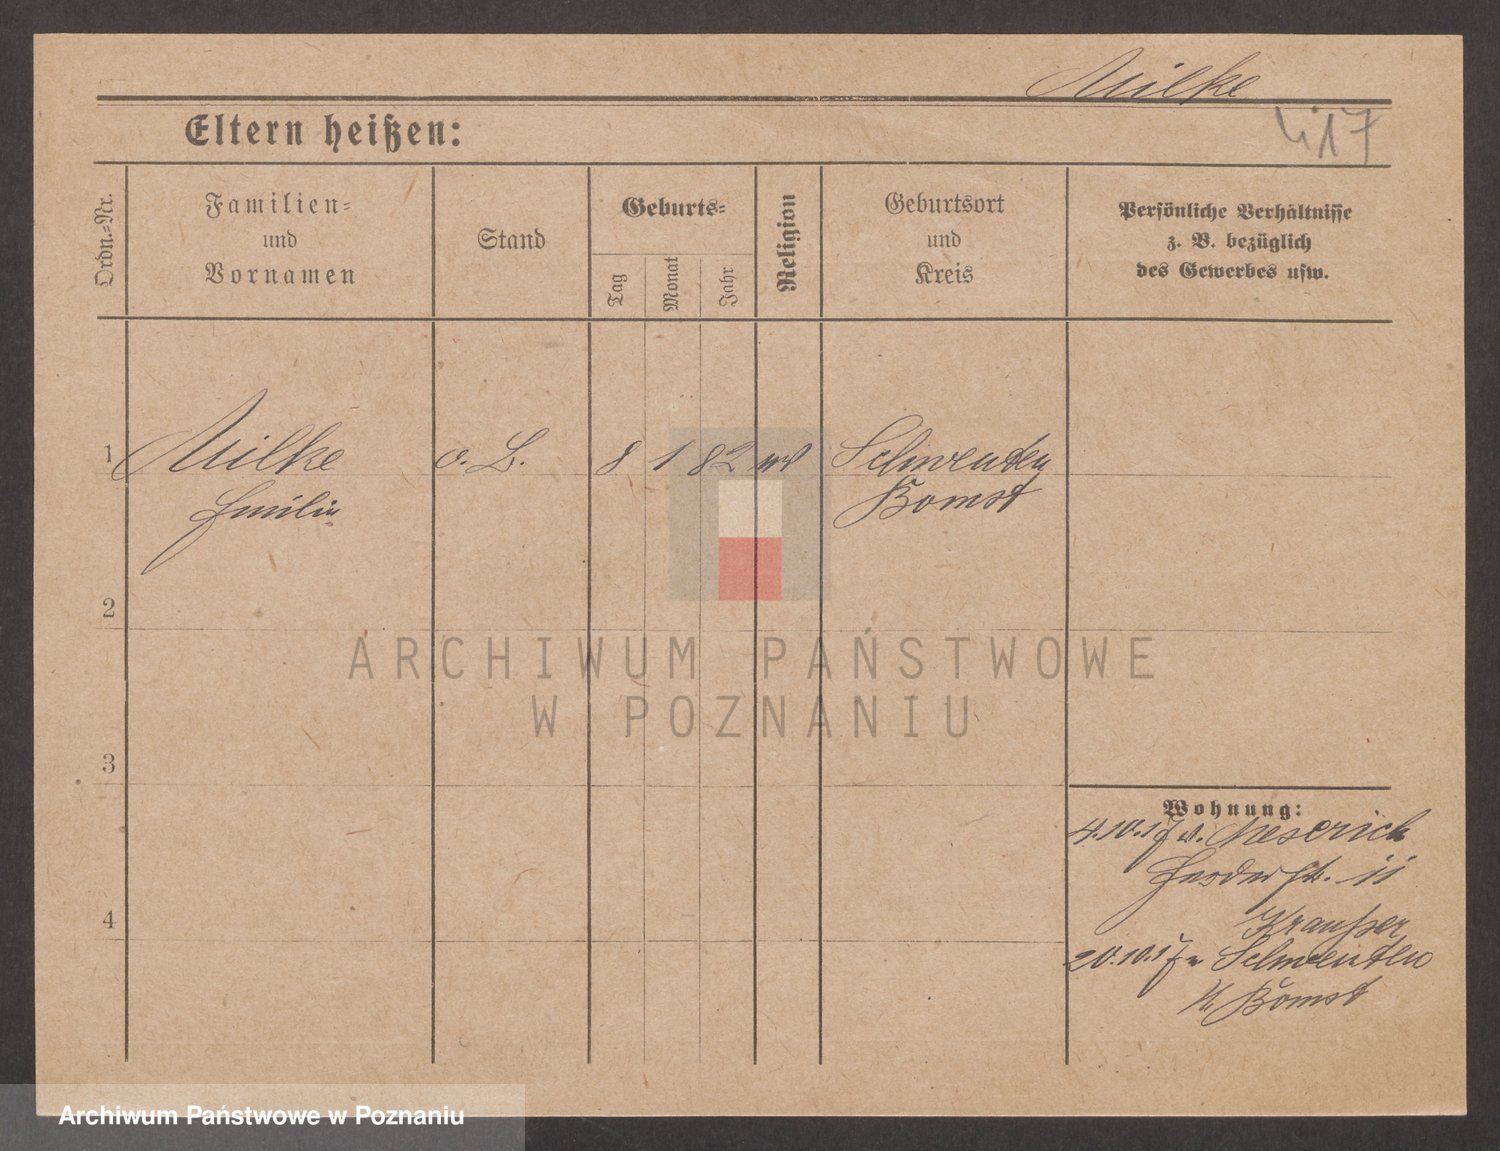 Milke
417
Eltern heißen:
Ordn.-Nr.
Familien-
und
Vornamen
Stand
Geburts-
Tag
Monat
Jahr
Religion
Geburtsort
und
Kreis
Persönliche Verhältnisse
z. B. bezüglich
des Gewerbes usw.
1 Milke o. B. 8 1 82 Schwenten
Emilie Bomst
2
ARCHIWUM PAŃSTWOWE
W POZNANIU
3
Wohnung:
4.10.17 v. Meserich
str. 11
4
Kraußer
20.10.17 n Schwenten
K Bomst
Archiwum Państwowe w Poznaniu